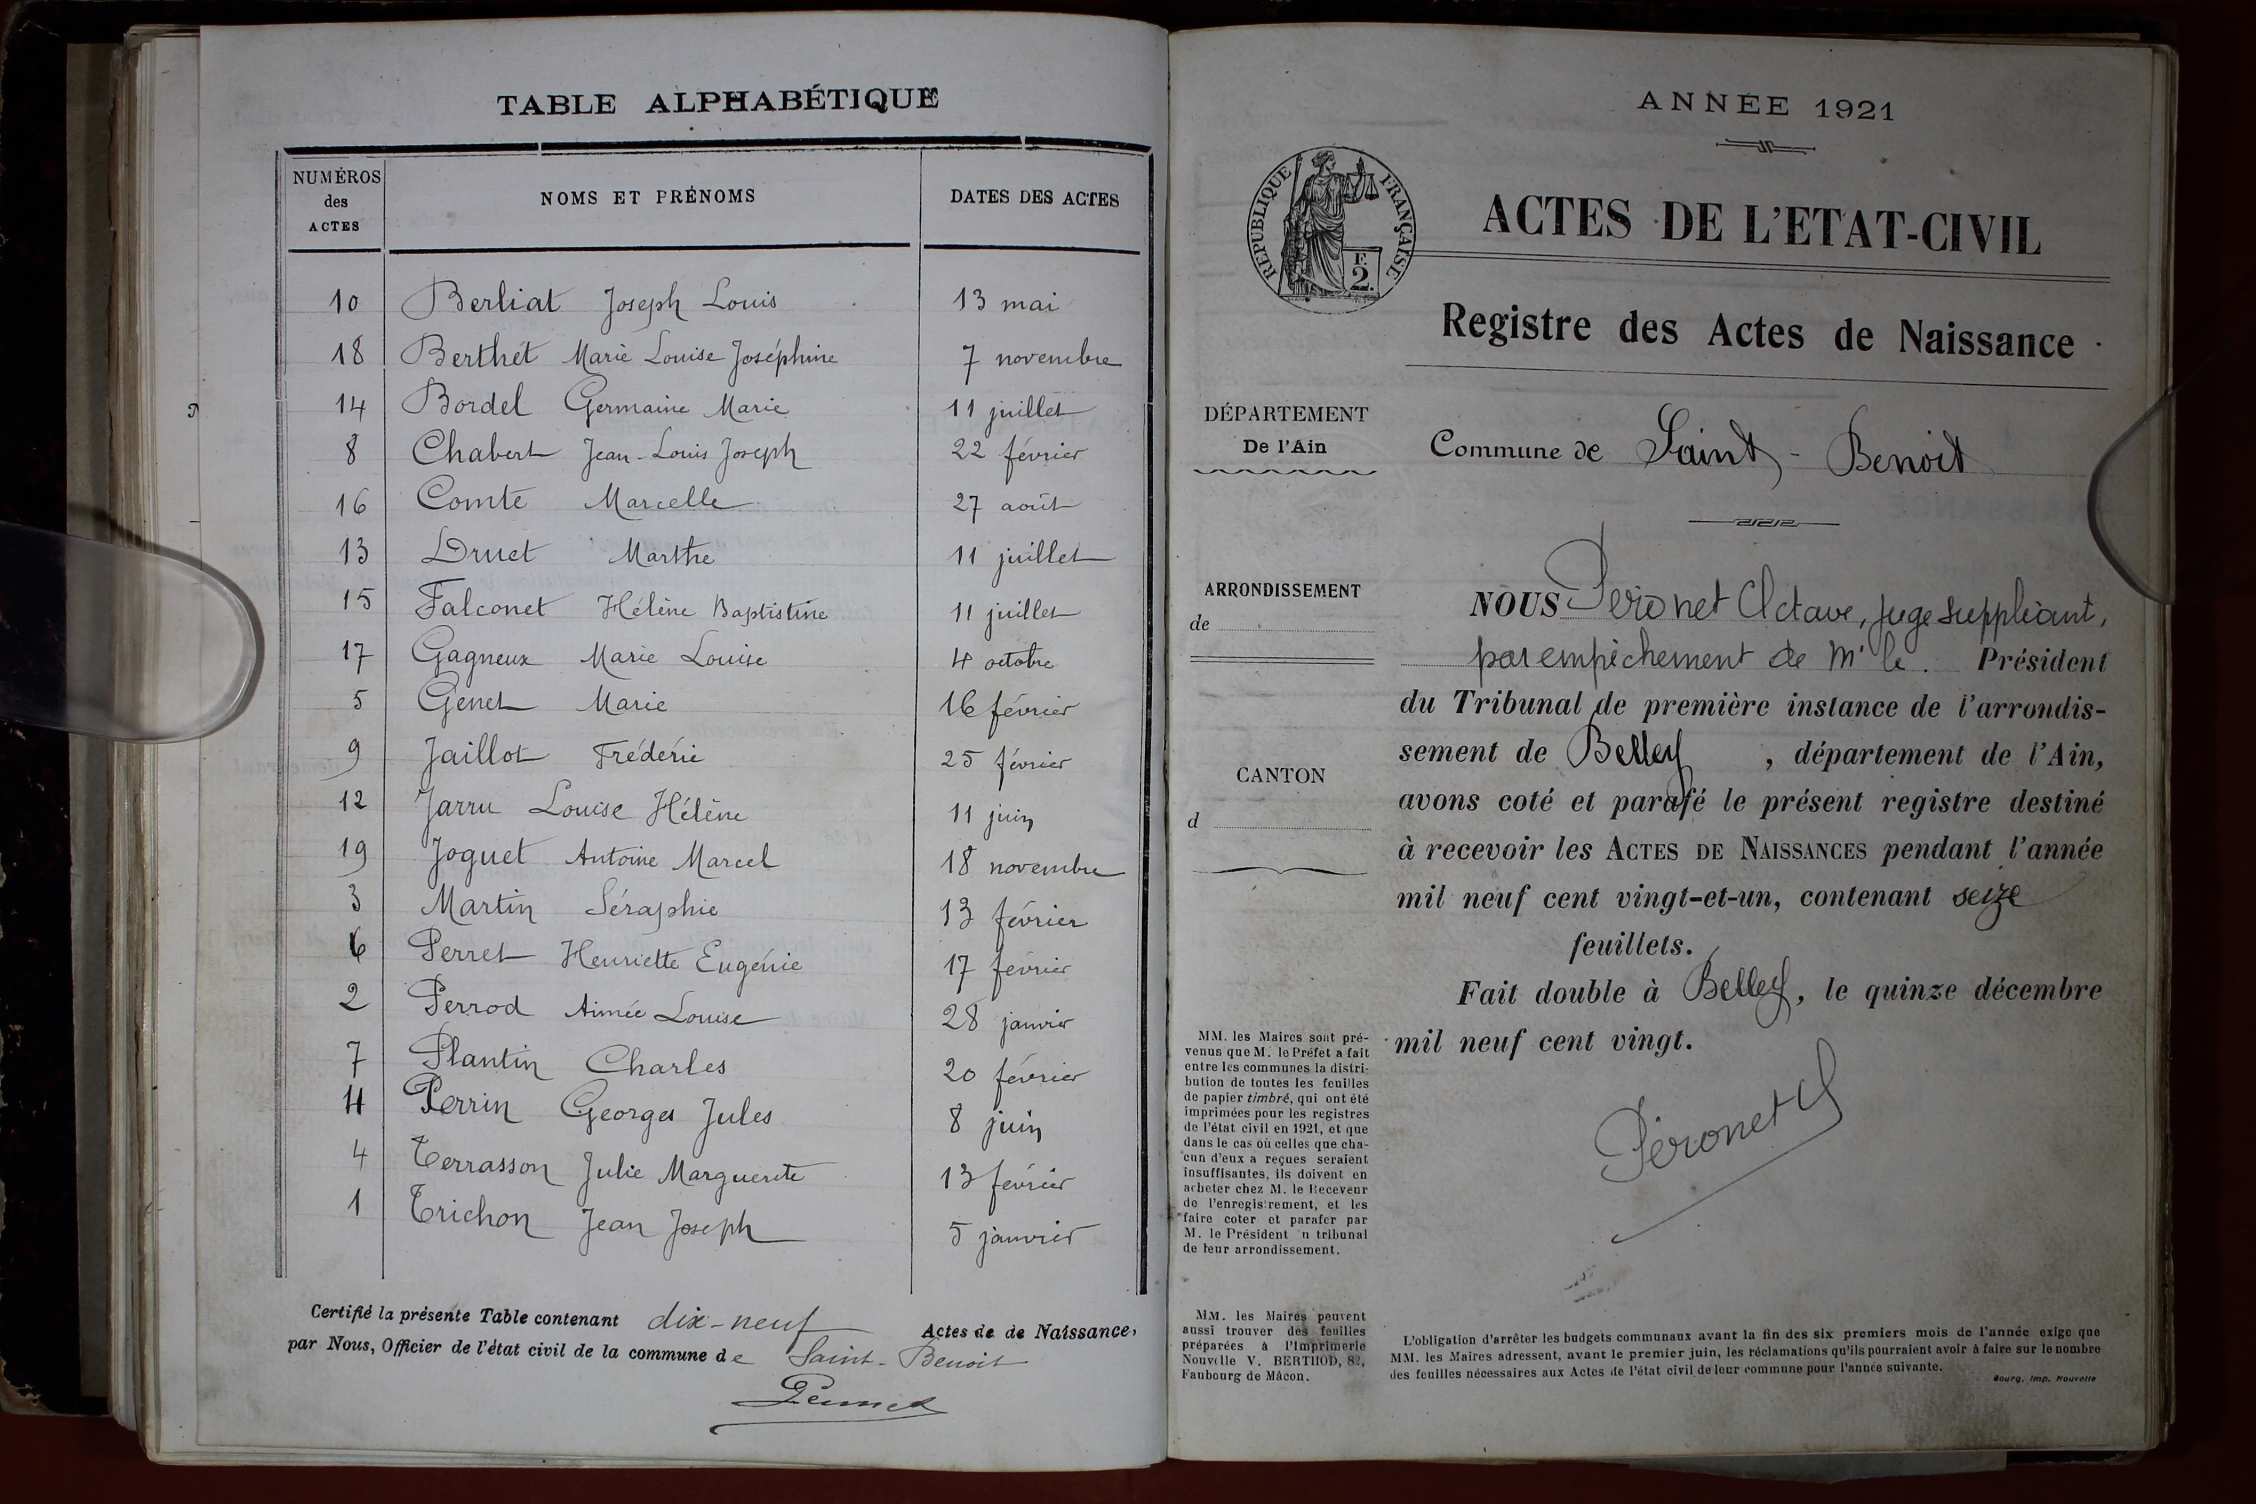 TABLE ALPHABÉTIQUE
NUMÉROS des ACTES NOMS ET PRÉNOMS DATES DES ACTES
10 Berliat Joseph Louis 13 mai
18 Berthet Marie Louise Joséphine 7 novembre
14 Bordel Germaine Marie 11 juillet
8 Chabert Jean-Louis Joseph 22 février
16 Comte Marcelle 27 août
13 Druet Marthe 11 juillet
15 Falconet Hélène Baptistine 11 juillet
17 Gagneux Marie Louise 4 octobre
5 Genet Marie 16 février
9 Jaillot Fréderic 25 février
12 Jarru Louise Hélène 11 juin
19 Joguet Antoine Marcel 18 novembre
3 Martin Séraphie 13 février
6 Perret Henriette Eugénie 17 février
2 Perrod Aimée Louise 28 janvier
7 Plantin Charles 20 février
11 Perrin Georges Jules 8 juin
4 Terrasson Julie Marguerite 13 février
1 Trichon Jean Joseph 5 janvier
Certifié la présente Table contenant dix-neuf Actes de de Naissance,
par Nous, Officier de l'état civil de la commune de Saint-Benoit
ANNÉE 1921
RÉPUBLIQUE FRANÇAISE
F.
2.
ACTES DE L'ETAT-CIVIL
Registre des Actes de Naissance
DÉPARTEMENT
De l'Ain
Commune de Saint-Benoit
ARRONDISSEMENT
de
CANTON
d
NOUS Peronet Octave, juge suppléant,
par empêchement de Mr le. Président
du Tribunal de première instance de l'arrondis-
sement de Belley, département de l'Ain,
avons coté et parafé le présent registre destiné
à recevoir les ACTES DE NAISSANCES pendant l'année
mil neuf cent vingt-et-un, contenant seize
feuillets.
Fait double à Belley, le quinze décembre
mil neuf cent vingt.
Péronet
MM. les Maires sont pré-
venus que M. le Préfet a fait
entre les communes la distri-
bution de toutes les feuilles
de papier timbré, qui ont été
imprimées pour les registres
de l'état civil en 1921, et que
dans le cas où celles que cha-
cun d'eux a reçues seraient
insuffisantes, ils doivent en
acheter chez M. le Receveur
de l'enregistrement, et les
faire coter et parafer par
M. le Président n tribunal
de leur arrondissement.
MM. les Maires peuvent
aussi trouver des feuilles
préparées à l'Imprimerie
Nouvelle V. BERTHOD, 82,
Faubourg de Mâcon.
L'obligation d'arrêter les budgets communaux avant la fin des six premiers mois de l'année exige que
MM. les Maires adressent, avant le premier juin, les réclamations qu'ils pourraient avoir à faire sur le nombre
des feuilles nécessaires aux Actes de l'état civil de leur commune pour l'année suivante.
Bourg, Imp. Nouvelle